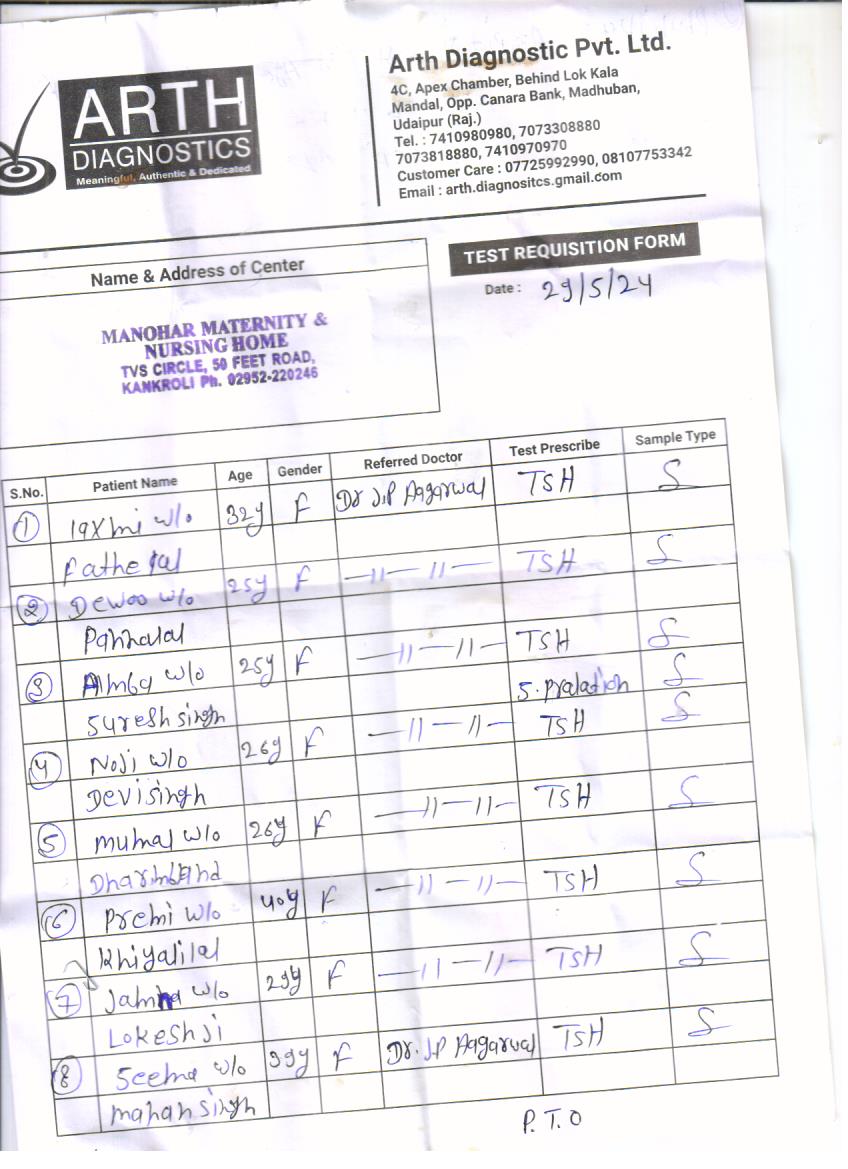 ARTH
DIAGNOSTICS
Meaningful, Authentic & Dedicated
Arth Diagnostic Pvt. Ltd.
4C, Apex Chamber, Behind Lok Kala
Mandal, Opp. Canara Bank, Madhuban,
Udaipur (Raj.)
Tel. : 7410980980, 7073308880
7073818880, 7410970970
Customer Care : 07725992990, 08107753342
Email : arth.diagnositcs.gmail.com
Name & Address of Center
TEST REQUISITION FORM
Date : 29/5/24
MANOHAR MATERNITY &
NURSING HOME
TVS CIRCLE, 50 FEET ROAD,
KANKROLI Ph. 02952-220246
S.No. Patient Name Age Gender Referred Doctor Test Prescribe Sample Type
1 laxmi w/o 32y F Dr J.P Aagarwal TSH S
fathe lal
2 Dewoo w/o 25y F —11—11— TSH S
Pannalal
3 Almba w/o 25y F —11—11— TSH S
Suresh singh S. pralation S
4 Noji w/o 26y F —11—11— TSH S
Devi singh
5 mumal w/o 26y F —11—11— TSH S
6 Premi w/o 40y F —11—11— TSH S
Khiyalilal
7 Jamna w/o 29y F —11—11— TSH S
Lokesh ji
8 Seema w/o 39y F Dr. J.P Aagarwal TSH S
mahan singh
P.T.O